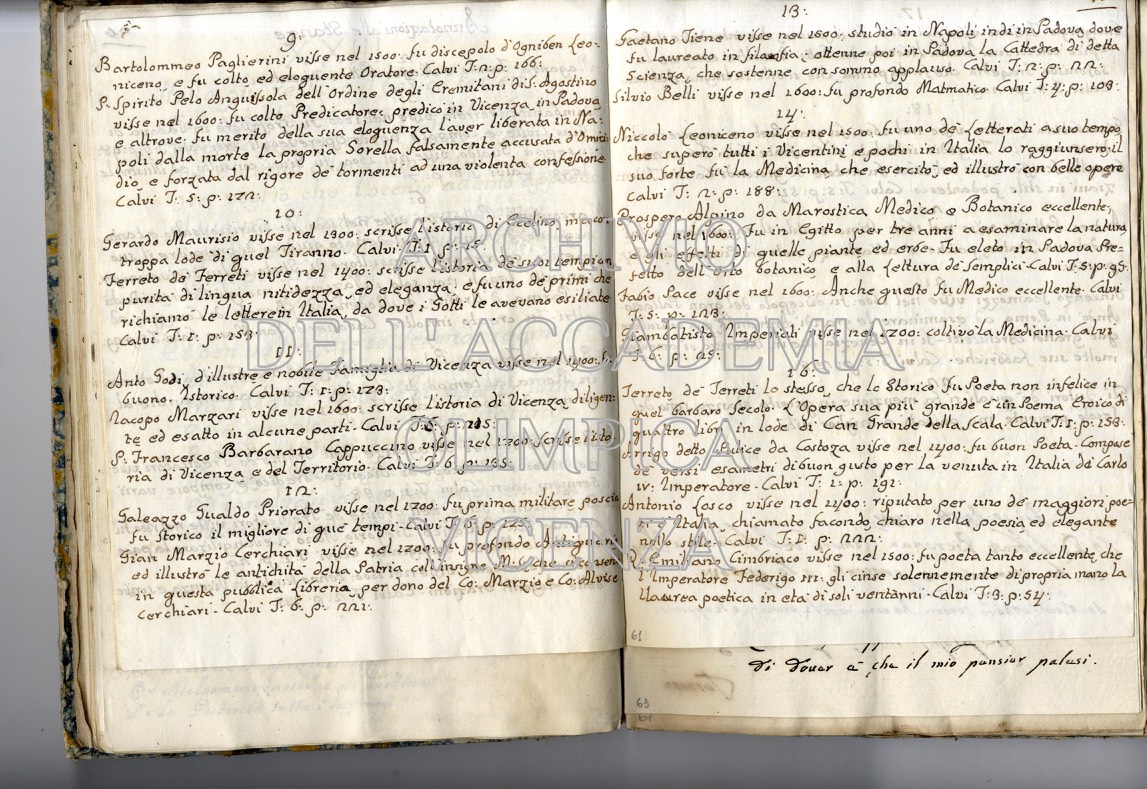 9.
Bartolommeo Paglierini visse nel 1500: fu discepolo d'Ogniben Leo-
niceno, e fu colto ed eloquente Oratore. Calvi T: 2: p: 166:
P. Spirito Pelo Anguissola dell'Ordine degli Eremitani di S: Agostino
visse nel 1600: fu colto Predicatore: predicò in Vicenza, in Padova
e altrove: fu merito della sua eloquenza l'aver liberata in Na:
poli dalla morte la propria Sorella falsamente accusata d'Omici:
dio, e forzata dal rigore de tormenti ad una violenta confessione
Calvi T: 5: p: 172:
10:
Gerardo Maurisio visse nel 1300: scrisse l'istoria di Ecelino, ma co:
troppa lode di quel Tiranno. Calvi T: I p:
Ferreto de Ferreti visse nel 1400: scrisse l'istoria de suoi tempi con
purità di lingua nitidezza, ed eleganza: e fu uno de primi che
richiamò le lettere in Italia, da dove i Gotti le avevano esiliate
Calvi T: I: p: 153:
11:
Anto Godi, d'illustre e nobile Famiglia di Vicenza visse nel 1400: fu
buono Istorico. Calvi T: I: p: 173:
Jacopo Marzari visse nel 1600: scrisse l'istoria di Vicenza diligen:
te ed esatto in alcune parti. Calvi T: 5: p: 215:
P. Francesco Barbarano Cappuccino visse nel 1700: scrisse l'isto
ria di Vicenza e del Territorio. Calvi T: 6: p: 135:
12:
Galeazzo Gualdo Priorato visse nel 1700: fu prima militare poscia
fu storico il migliore di que' tempi. Calvi T: 6: p: 125:
Gian Marzio Cerchiari visse nel 1700: fu profondo Antiquario
ed illustrò le antichità della Patria coll'insigne che
in questa pubblica Libreria, per dono del Co: Marzio e Co: Alvise
Cerchiari. Calvi T: 6: p: 221:
13:
Gaetano Tiene visse nel 1500, studiò in Napoli indi in Padova, dove
fu laureato in filosofia: ottenne poi in Padova la Cattedra di detta
Scienza, che sostenne con sommo applauso. Calvi T: 2: p: 22:
Silvio Belli visse nel 1600: fu profondo Matmatico. Calvi T: 4: p: 108:
14:
Niccolò Leoniceno visse nel 1500: fu uno de Letterati a suo tempo
che superò tutti i Vicentini e pochi in Italia lo raggiunsero: il
suo forte fù la Medicina che esercitò, ed illustrò con belle opere
Calvi T: 2: p: 188:
Prospero Alpino da Marostica Medico e Botanico eccellente,
visse nel 1600: Fu in Egitto per tre anni a esaminare la natura
e gli effetti di quelle piante ed erbe. Fu eleto in Padova Pre-
fetto dell'Orto botanico e alla Lettura de Semplici. Calvi T: 5: p: 95:
Fabio Pace visse nel 1600: Anche questo fu Medico eccellente. Calvi
T: 5: p: 123:
Giambatisto Imperiali visse nel 1700: coltivò la Medicina. Calvi
T: 6: p: 29:
16:
Ferreto de Ferreti lo stesso, che lo Storico. Fu Poeta non infelice in
quel barbaro Secolo. L'Opera sua più grande è un Poema Eroico di
quattro libri in lode di Can Grande della Scala. Calvi T: I: p: 153:
Arrigo detto Euice da Costoza visse nel 1400: fu buon Poeta. Compose
de versi esametri di buon gusto per la venuta in Italia de Carlo
IV: Imperatore. Calvi T: I: p: 191:
Antonio Losco visse nel 1400: riputato per uno de maggiori poe:
ti d'Italia, chiamato facondo, chiaro nella poesia ed elegante
nello stile. Calvi T: I: p: 222:
Q: Emiliano Cimbriaco visse nel 1500: fu poeta tanto eccellente, che
l'Imperatore Federigo III: gli cinse solennemente di propria mano la
Llaurea poetica in età di soli vent'anni. Calvi T: 3: p: 54:
61
di dover à cha il mio pensier palesi.
63
ARCHIVIO
DELL'ACCADEMIA
OLIMPICA
VICENZA